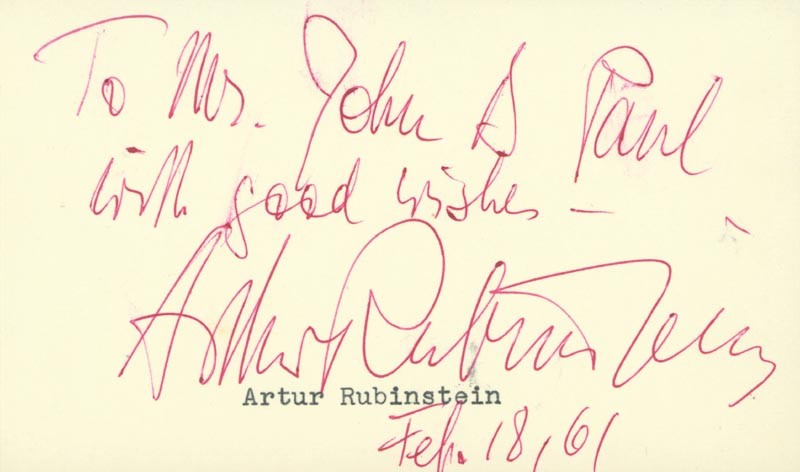 To Mr. John S Paul
with good wishes –
Arthur Rubinstein
Artur Rubinstein
Feb. 18, 61